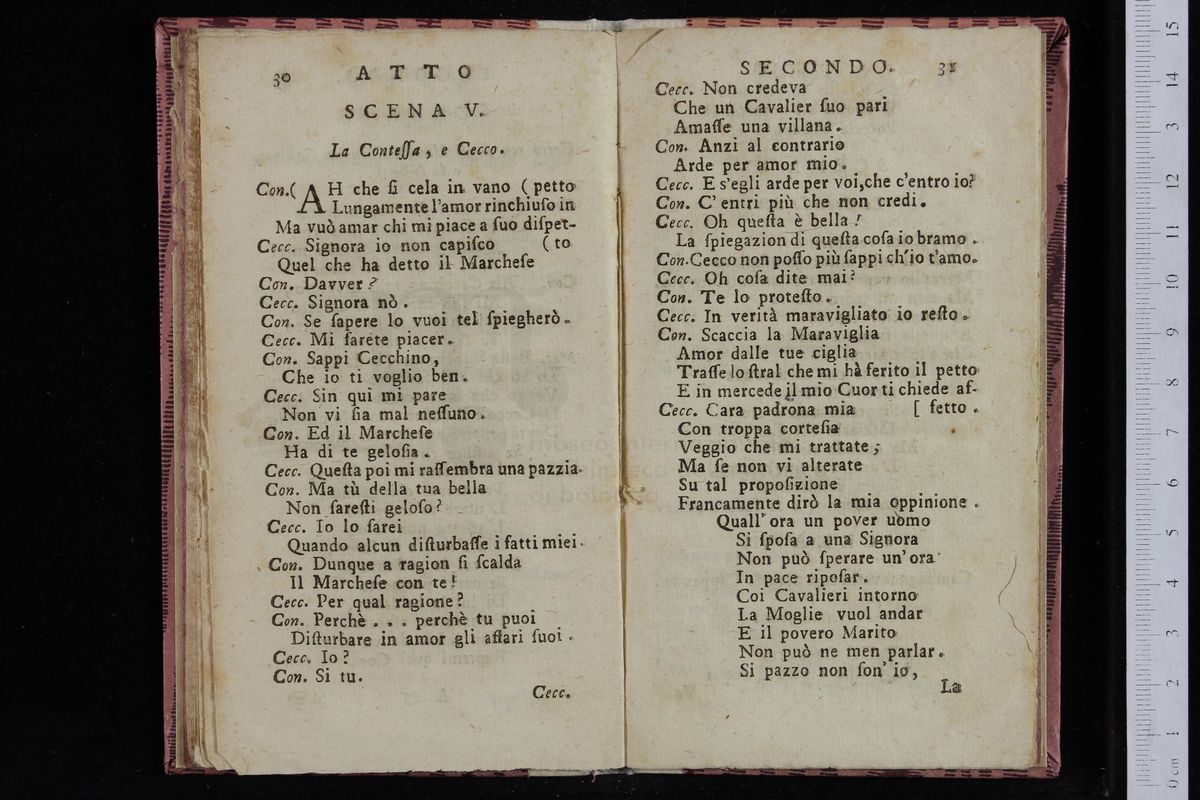 30 ATTO
SCENA V.
La Conteſſa, e Cecco.
Con.( AH che ſi cela in vano ( petto
Lungamente l'amor rinchiuſo in
Ma vuò amar chi mi piace a ſuo diſpet-
Cecc. Signora io non capiſco ( to
Quel che ha detto il Marcheſe
Con. Davver?
Cecc. Signora nò.
Con. Se ſapere lo vuoi tel ſpiegherò.
Cecc. Mi ſarete piacer.
Con. Sappi Cecchino,
Che io ti voglio ben.
Cecc. Sin qui mi pare
Non vi ſia mal neſſuno.
Con. Ed il Marcheſe
Ha di te geloſia.
Cecc. Queſta poi mi raſſembra una pazzia.
Con. Ma tù della tua bella
Non ſareſti geloſo?
Cecc. Io lo ſarei
Quando alcun diſturbaſſe i fatti miei.
Con. Dunque a ragion ſi ſcalda
Il Marcheſe con te!
Cecc. Per qual ragione?
Con. Perchè . . . perchè tu puoi
Diſturbare in amor gli affari ſuoi.
Cecc. Io?
Con. Si tu.
Cecc.
SECONDO. 31
Cecc. Non credeva
Che un Cavalier ſuo pari
Amaſſe una villana.
Con. Anzi al contrario
Arde per amor mio.
Cecc. E s'egli arde per voi, che c'entro io?
Con. C' entri più che non credi.
Cecc. Oh queſta è bella!
La ſpiegazion di queſta coſa io bramo.
Con. Cecco non poſſo più ſappi ch'io t'amo.
Cecc. Oh coſa dite mai?
Con. Te lo proteſto.
Cecc. In verità maravigliato io reſto.
Con. Scaccia la Maraviglia
Amor dalle tue ciglia
Traſſe lo ſtral che mi hà ferito il petto
E in mercede il mio Cuor ti chiede af-
Cecc. Cara padrona mia [ fetto.
Con troppa corteſia
Veggio che mi trattate;
Ma ſe non vi alterate
Su tal propoſizione
Francamente dirò la mia oppinione.
Quall' ora un pover uomo
Si ſpoſa a una Signora
Non può ſperare un' ora
In pace ripoſar.
Coi Cavalieri intorno
La Moglie vuol andar
E il povero Marito
Non può ne men parlar.
Si pazzo non ſon' io,
La
0 cm 1 2 3 4 5 6 7 8 9 10 11 12 13 14 15